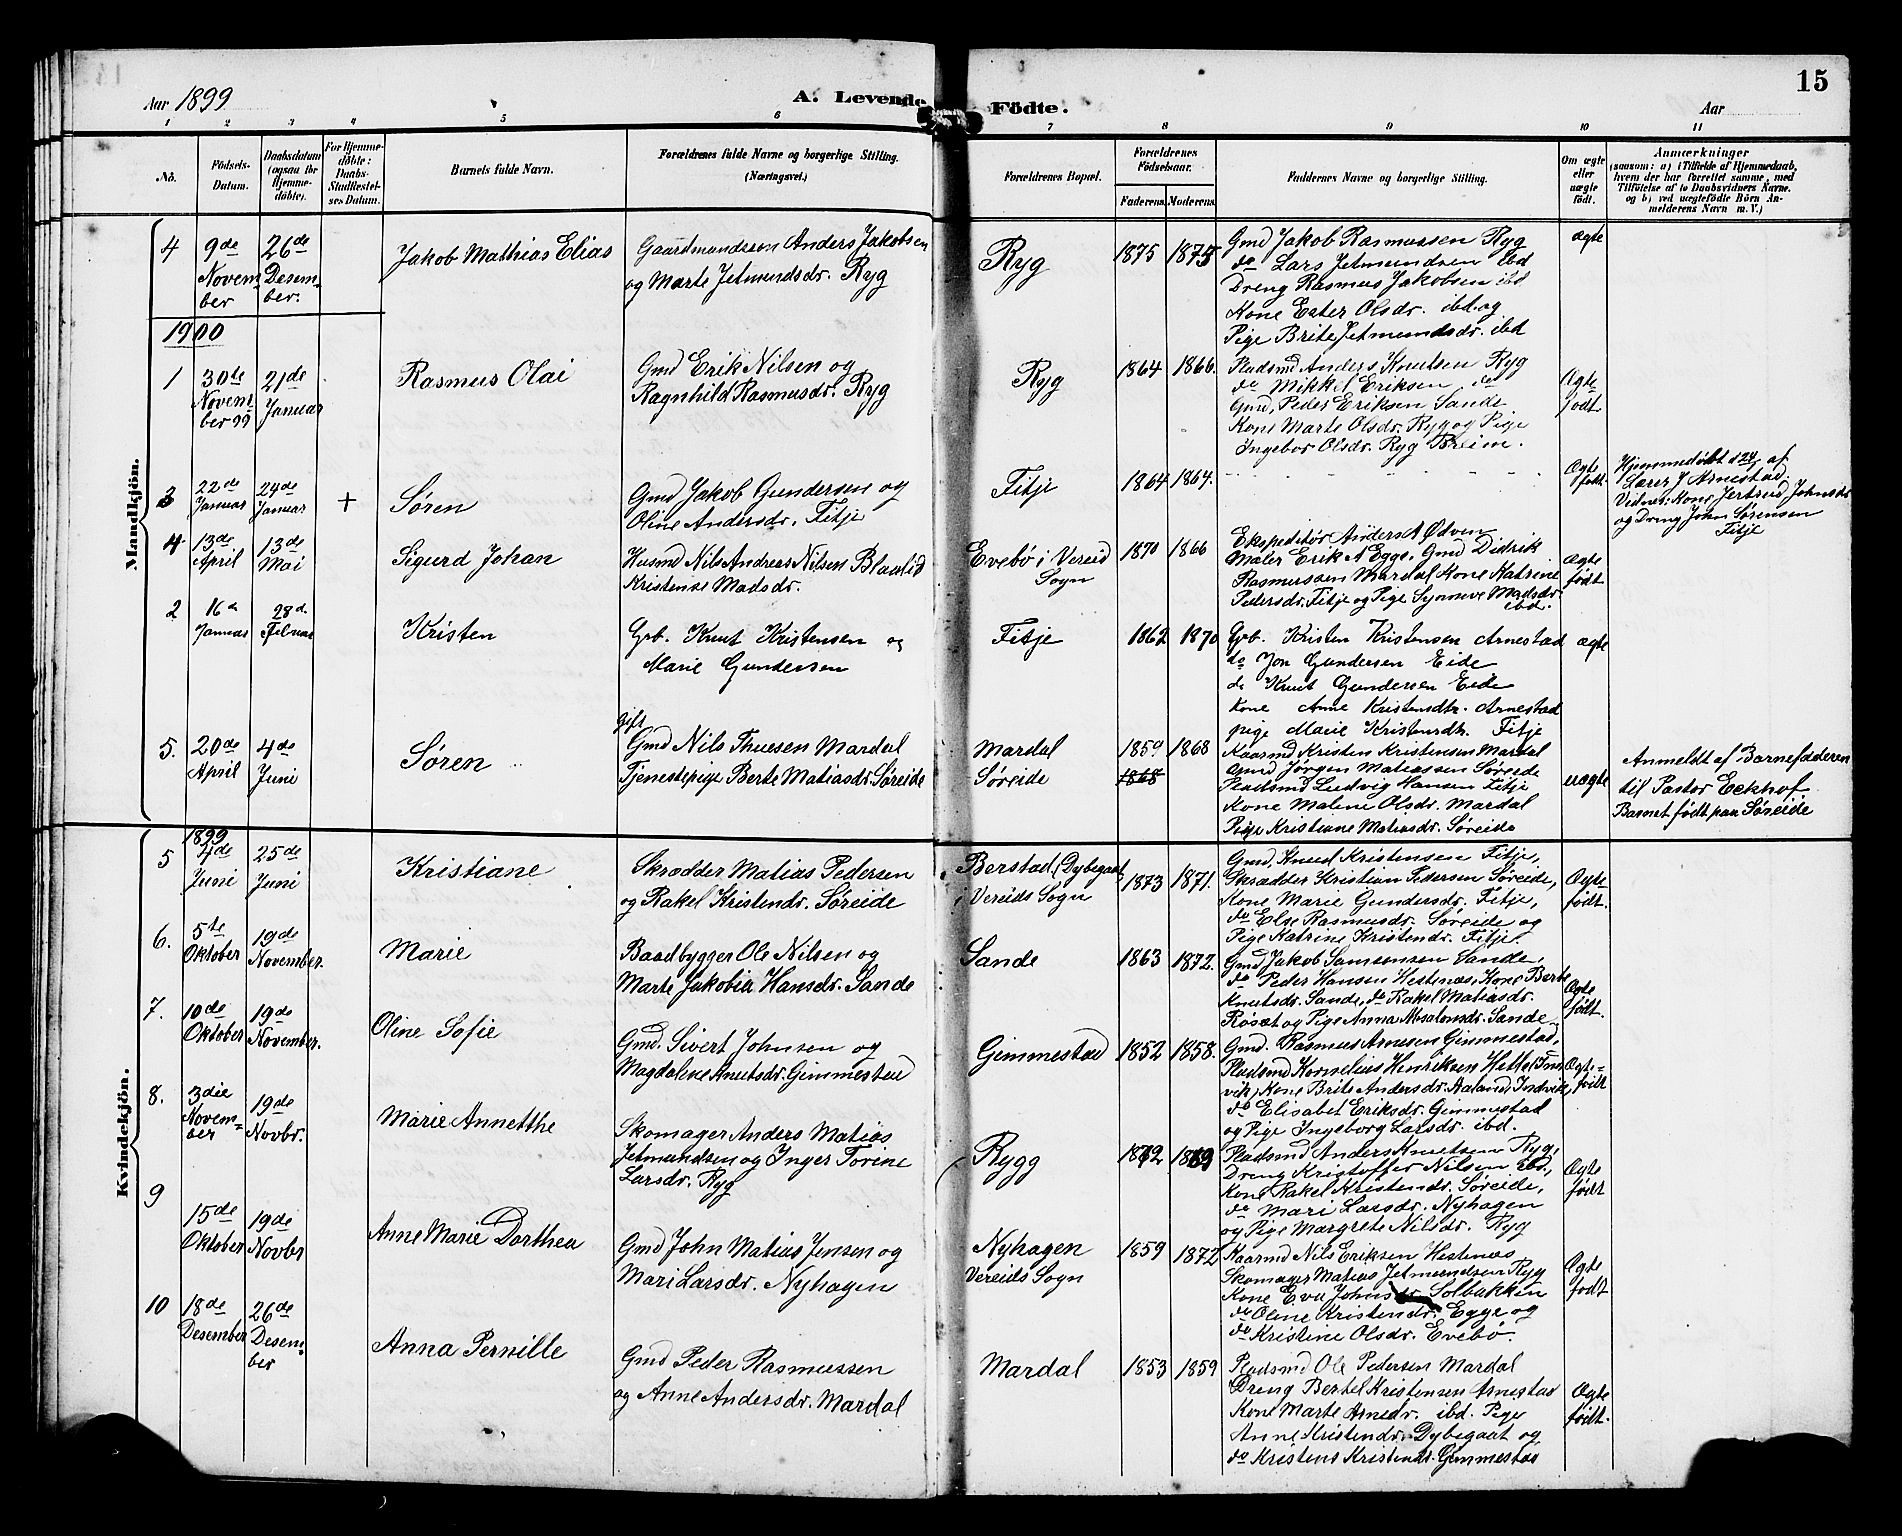 15
Aar 1899
A. Levende Födte.
Aar
1 2 3 4 5 6 7 8 9 10 11
No.
Födsels-
Datum.
Daabsdatum
(ogsaa for
Hjemme-
döbte).
For Hjemme-
döbte:
Daabs-
Stadfæstel-
ses Datum.
Barnets fulde Navn.
Forældrenes fulde Navne og borgerlige Stilling.
(Næringsvei.)
Forældrenes Bopæl.
Forældrenes
Födselsaar.
Faderens. Moderens.
Faddernes Navne og borgerlige Stilling.
Om ægte
eller
uægte
födt.
Anmærkninger
(saasom: a) i Tilfælde af Hjemmedaab,
hvem der har forrettet samme, med
Tilföielse af to Daabsvidners Navne.
og b) ved uægtefödte Börn An-
melderens Navn m. V.)
Mandkjön.
4
9de
Novem-
ber
26de
Desem-
ber.
Jakob Mathias Elias
Gaardmandsøn Anders Jakobsen
og Marte Jetmundsdr. Ryg
Ryg
1875 1875
Gmd Jakob Rasmussen Ryg
do Lars Jetmundsen ibd
Dreng Rasmus Jakobsen ibd
Kone Ester Olsdr. ibd. og
Pige Brite Jetmundsdr. ibd
ægte
1900
1
30te
Novem-
ber 99
21de
Januar
Rasmus Olai
Gmd Erik Nilsen og
Ragnhild Rasmusdr. Ryg
Ryg
1864 1866.
Pladsmd Anders Knutsen Ryg
do Mikkel Eriksen do
Gmd, Peder Eriksen Sande
Kone Marte Olsdr. Ryg og Pige
Ingebor Olsdr. Ryg Breim.
Ægte
født.
3
22de
Januar
24de
Januar
+
Søren
Gmd Jakob Gundersen og
Oline Andersdr. Fitje
Fitje
1864 1867.
Ægte
født.
Hjemmedøbt d 24/1 af
Lærer J Arnestad.
Vidner: Kone Jertrud Johnsdr
og Dreng John Sørensen
Fitje
4
13de
April
13de
Mai
Sigurd Johan
Husmd Nils Andreas Nilsen Blaalid
Kristense Madsdr.
Evebö i Vereid
Sogn
1870 1866
Ekspeditör Anders A Ødven
Maler Erik A Egge. Gmd Didrik
Rasmussen Mardal Kone Katrine
Petersdr. Fitje og Pige Synneve Madsdr
ibd.
Ægte
født
2
16d
Januar
28d.
Februar
Kristen
Grb. Knut Kristensen og
Marie Gundersen
Fitje
1862 1870
Grb. Kristen Kristensen Arnestad
do Jon Gundersen Eide
do Knut Gundersen Eide
Kone Anne Kristensdtr. Arnestad
pige Marie Kristensdtr. Fitje
ægte
5.
20de
April
4de
Juni
Søren
gift
Gmd Nils Thuesen Mardal
Tjenestepige Berte Matiasdr. Søreide
Mardal
Søreide
1859 1868
1868
Kaarmd Kristen Kristensen Mardal
Gmd Jørgen Matiassen Søreide
Pladsmd Ludvig Hansen Fitje
Kone Maline Olsdr. Mardal
Pige Kristiane Matiasdr. Søreide
uægte
Anmeldt af Barnefaderen
til Pastor Eckhof
Barnet født paa Søreide
Kvindekjön.
1899
5
4de
Juni
25de
Juni
Kristiane
Skrædder Matias Pedersen
og Rakel Kristendr. Søreide
Berstad, Dybegaat
i Vereids Sogn
1873 1871.
Gmd. Knud Kristensen Fitje,
Skrædder Kristian Pedersen Søreide,
Kone Marie Gundersdr. Fitje,
do Else Rasmusdr. Søreide og
Pige Katrine Kristendr. Fitje.
Ægte-
født.
6.
5te
Oktober
19de
November.
Marie
Baadbygger Ole Nilsen og
Marte Jakobia Hansdr. Sande
Sande
1863 1872.
Gmd Jakob Samsonsen Sande,
do Peder Hansen Hestenæs, Kone Berte
Knutsdr. Sande, do Rakel Matiasdr.
Røsæt og Pige Anna Absalonsdr. Sande
Ægte
født.
7.
10de
Oktober
19de
November.
Oline Sofie
Gmd. Sivert Johnsen og
Magdalene Knutsdr. Gimmestad
Gimmestad
1852 1858.
Gmd. Rasmus Arnesen Gimmestad,
Pladsmd Kornelius Henriksen Hetle Inn-
vik, Kone Brite Andersdr. Aaland Indvik,
do Elisabet Eriksdr. Gimmestad
og Pige Ingeborg Larsdr. ibd.
Ægte-
født
8.
3die
Novem-
ber
19de
Novbr.
Marie Annetthe
Skomager Anders Matias
Jetmundsen og Inger Torine
Larsdr. Ryg
Rygg
1872 1869
Pladsmd Anders Knutsen Ryg,
Dreng Kristoffer Nilsen ibd,
Kone Rakel Kristendr. Søreide,
do Mari Larsdr. Nyhagen
og Pige Margrete Nilsdr. Ryg
Ægte
født
9
15de
Oktober
19de
Novbr
Anne Marie Dorthea
Gmd John Matias Jensen og
Mari Larsdr. Nyhagen
Nyhagen
Vereids Sogn
1859 1872
Kaarmd Nils Eriksen Hestenæs
Skomager Matias Jetmundsen Ryg
Kone Eva Johnsdr. Solbakken
do Oline Kristendr. Egge og
do Kristine Olsdr. Evebö.
Ægte
født
10
18de
Desember
26de
Desem-
ber
Anna Pernille
Gmd Peder Rasmussen
og Anne Andersdr. Mardal
Mardal
1853 1859
Pladsmd Ole Pedersen Mardal
Dreng Bertel Kristensen Arnestad
Kone Marte Arnedr. ibd. Pige
Anne Kristendr. Dybegaat og
do Kristens Kristendr. Gimmestad
Ægte
født.